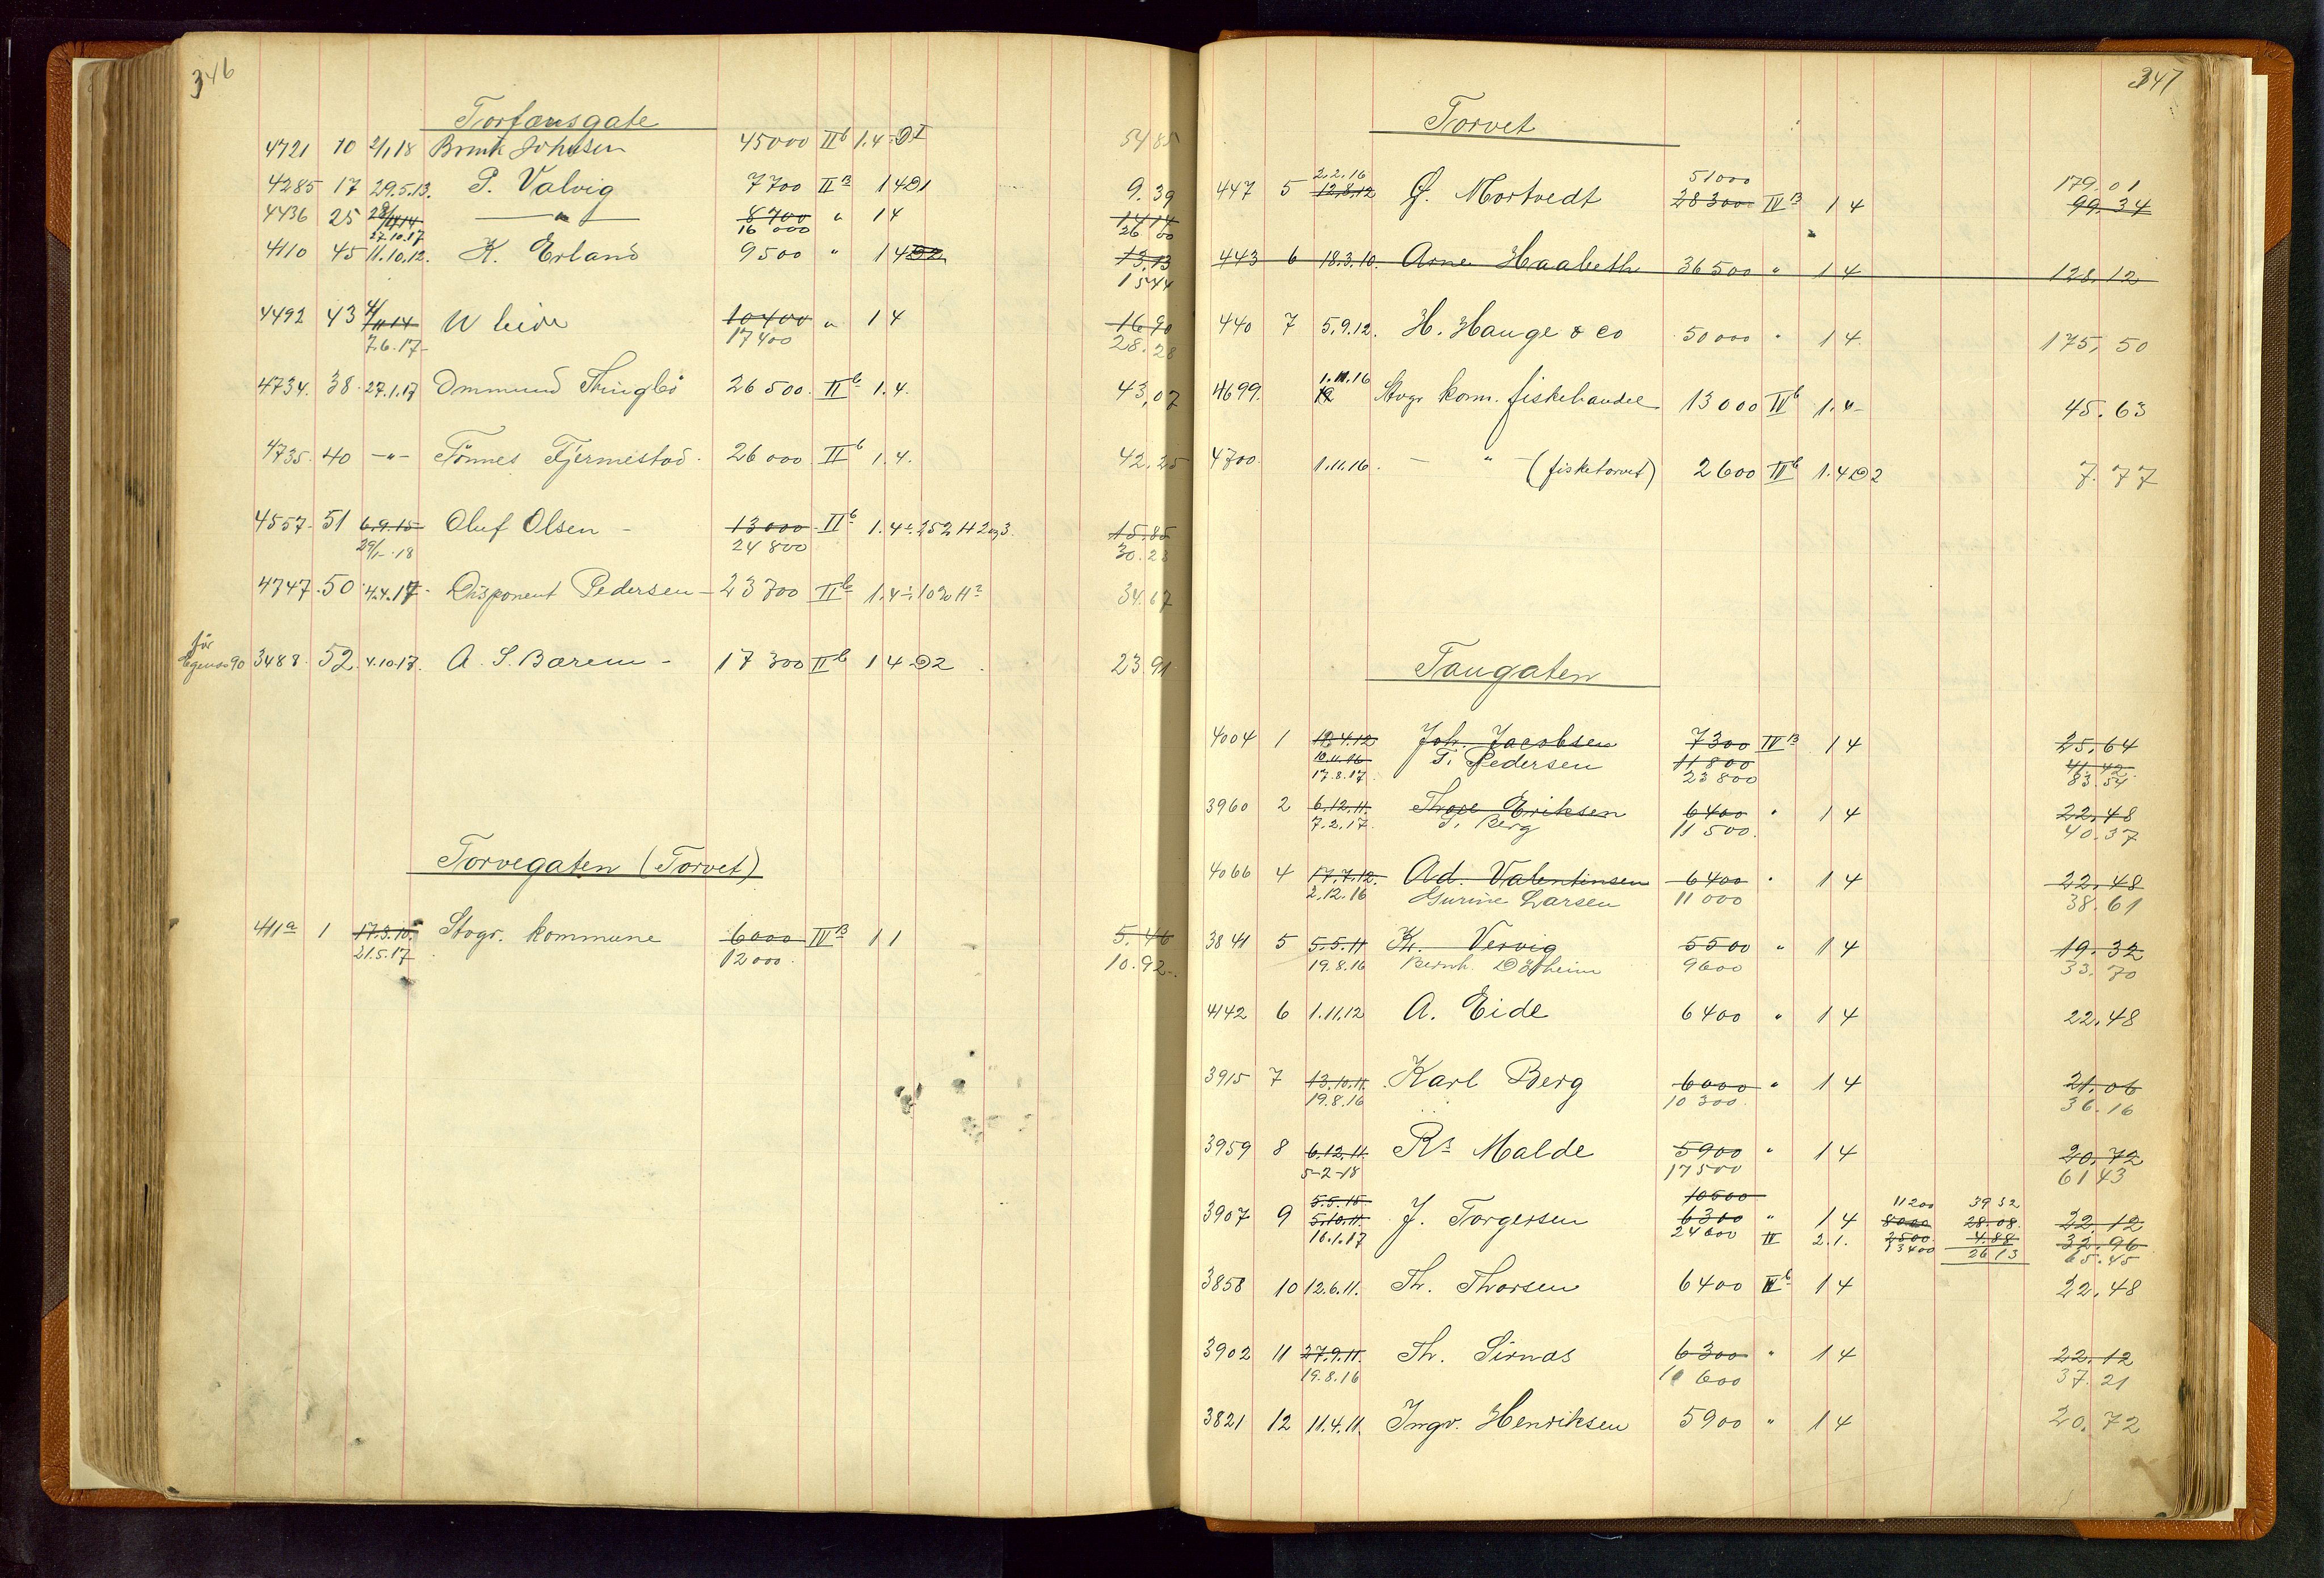 346
Torfæusgate
4721 10 2/1 18 Brink Johnsen 45000 IIb 1.4 54 85
4285 17 29.5.13. P. Valvig 7700 IIB 1 4 D1 9.39
4436 25 28/4 14 — " — 8700 " 1 4 14 14
27.10.17 16 000 26 00
4110 45 11.10.12. K. Erland 9500 " 1 4 D2 13,13
15 44
4492 43 4/11 14 10400 " 1 4 16 90
7.6.17- 17400 28.28
4734. 38. 27.1.17 Ommund 26500. IIb 1.4. 43,07
4735. 40 -"- Tönnes Fjermestad. 26 000 IIb 1.4. 42.25
4557. 51 6.9.15 Oluf Olsen - 13000 IIb 1.4 15.85
29/1 - 18 24 800 30.23
4747. 50 4.4.17. Disponent Pedersen - 23700 IIb 1.4 34.67
för
90 3488. 52. 4.10.17. A. S. Barem - 17 300 IIb 1 4 D2 23.91
Torvegaten (Torvet)
411a 1 17.3.10. Stvgr. kommune 6000 IVB 1 1 5.46
21.5.17 12000. 10.92-
347
Torvet
2.2.16 51000 179.01
447 5 12.8.12 Mortvedt 28300 IVB 1 4 99.34
443 6 18.3.10. Arne Haabeth 36500 " 1 4 128.12
440 7 5.9.12. H. Hauge & co 50000 " 1 4. 175,50
4699. 1.11.16 Stvgr komm. fiskehandel 13000 IVb 1.4- 45.63
12
4700. 1.11.16. — " — (fisketorvet) 2600 IVb 1.4 D2 7.77
Taugaten
4004 1 12.4.12 Joh. Jacobsen 7300 IVB 1 4 25,64
10.11.16 T. Pedersen 11800 41,42
17.8.17 23800 83.54
3960 2 6.12.11. Thore Eriksen 6400 " 1 4 22,48
7.2.17. T. Berg 11 500. 40.37
4066 4 17.7.12. Ad. Valentinsen 6400 " 1 4 22.48
2.12.16 Gurine Larsen 11 000 38.61
3841 5 5.5.11 Kr. Vervig 5500 " 1 4 19.32
19.8.16 Bernh. 9600 33.70
4142 6 1.11.12 A. Eide 6400 " 1 4 22.48
3915 7 13.10.11. Karl Berg 6000 " 1 4 21.06
19.8.16 10 300. 36.16
3959 8 6.12.11. Rs Malde 5900 " 1 4 20.72
5-2-18 17500 61 43
5.5.15 10600 11200 39 32
3907 9 5.10.11. J. Torgersen 6300 " 1 4 8000 28.08. 22.12
16.1.17 24600 IV 2.1. 2500 4.88 32.96
13400 26 13 65.45
3858 10 12.6.11. Th. Thorsen 6400 IVb 1 4 22.48
3902 11 27.9.11. Th. Sirnæs 6300 " 1 4 22.12
19.8.16 10 600 37.21
3821 12 11.4.11. Ingv. Henriksen 5900 " 1 4 20.72